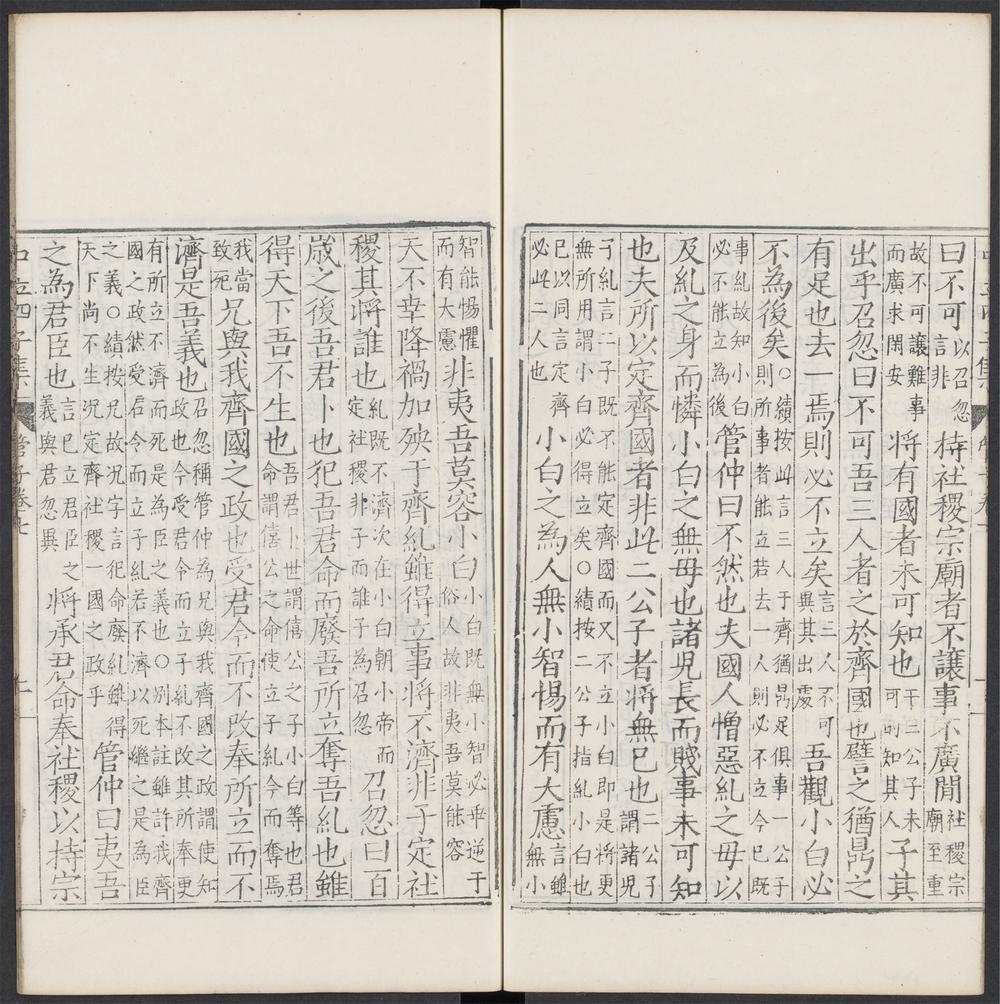 曰不可言非以召忽持社稷宗廟者不讓事不廣閒社稷宗廟至重
故不可讓難事而廣求閑安將有國者未可知也于三公子未可則知其人子其
出乎召忽曰不可吾三人者之於齊國也譬之猶鼎之
有足也去一焉則必不立矣言三人不可異其出處吾觀小白必
不為後矣○續按此言三人于齊猶鼎足俱事一公子則所事者能立若去一人則必不立今已既
事糺故知小白必不能立為後管仲曰不然也夫國人憎惡糺之母以
及糺之身而憐小白之無母也諸兒長而賤事未可知
也夫所以定齊國者非此二公子者將無已也二公子謂諸兒
子糺言二子既不能定齊國而又不立小白即是將更無所用謂小白必得立矣○續按二公子指糺小白也
已以同言定齊必此二人也小白之為人無小智惕而有大慮言雖無小
智能惕懼而有大慮非夷吾莫容小白小白既無小智必乖逆于俗人故非夷吾莫能容
天不幸降禍加殃于齊糺雖得立事將不濟非子定社
稷其將誰也糺既不濟次在小白朝小帝而定社稷非子而誰子為召忽召忽曰百
歲之後吾君卜也犯吾君命而廢吾所立奪吾糺也雖
得天下吾不生也吾君卜世謂僖公之子小白等也君命謂僖公之命使立子糺今而奪焉
我當致死兄與我齊國之政也受君令而不改奉所立而不
濟是吾義也召忽稱管仲為兄與我齊國之政謂使知政也今受君令而立子糺不改其所奉更
有所立不濟而死是為臣之義也○別本註雖許我齊國之政然受君令而立子糺若不濟以死繼之是為臣
之義○續按兄故況字言犯命廢糺雖得天下尚不生況定齊社稷一國之政乎管仲曰夷吾
之為君臣也言已立君臣之義與君忽異將承君命奉社稷以持宗
中立四子集 管子卷七